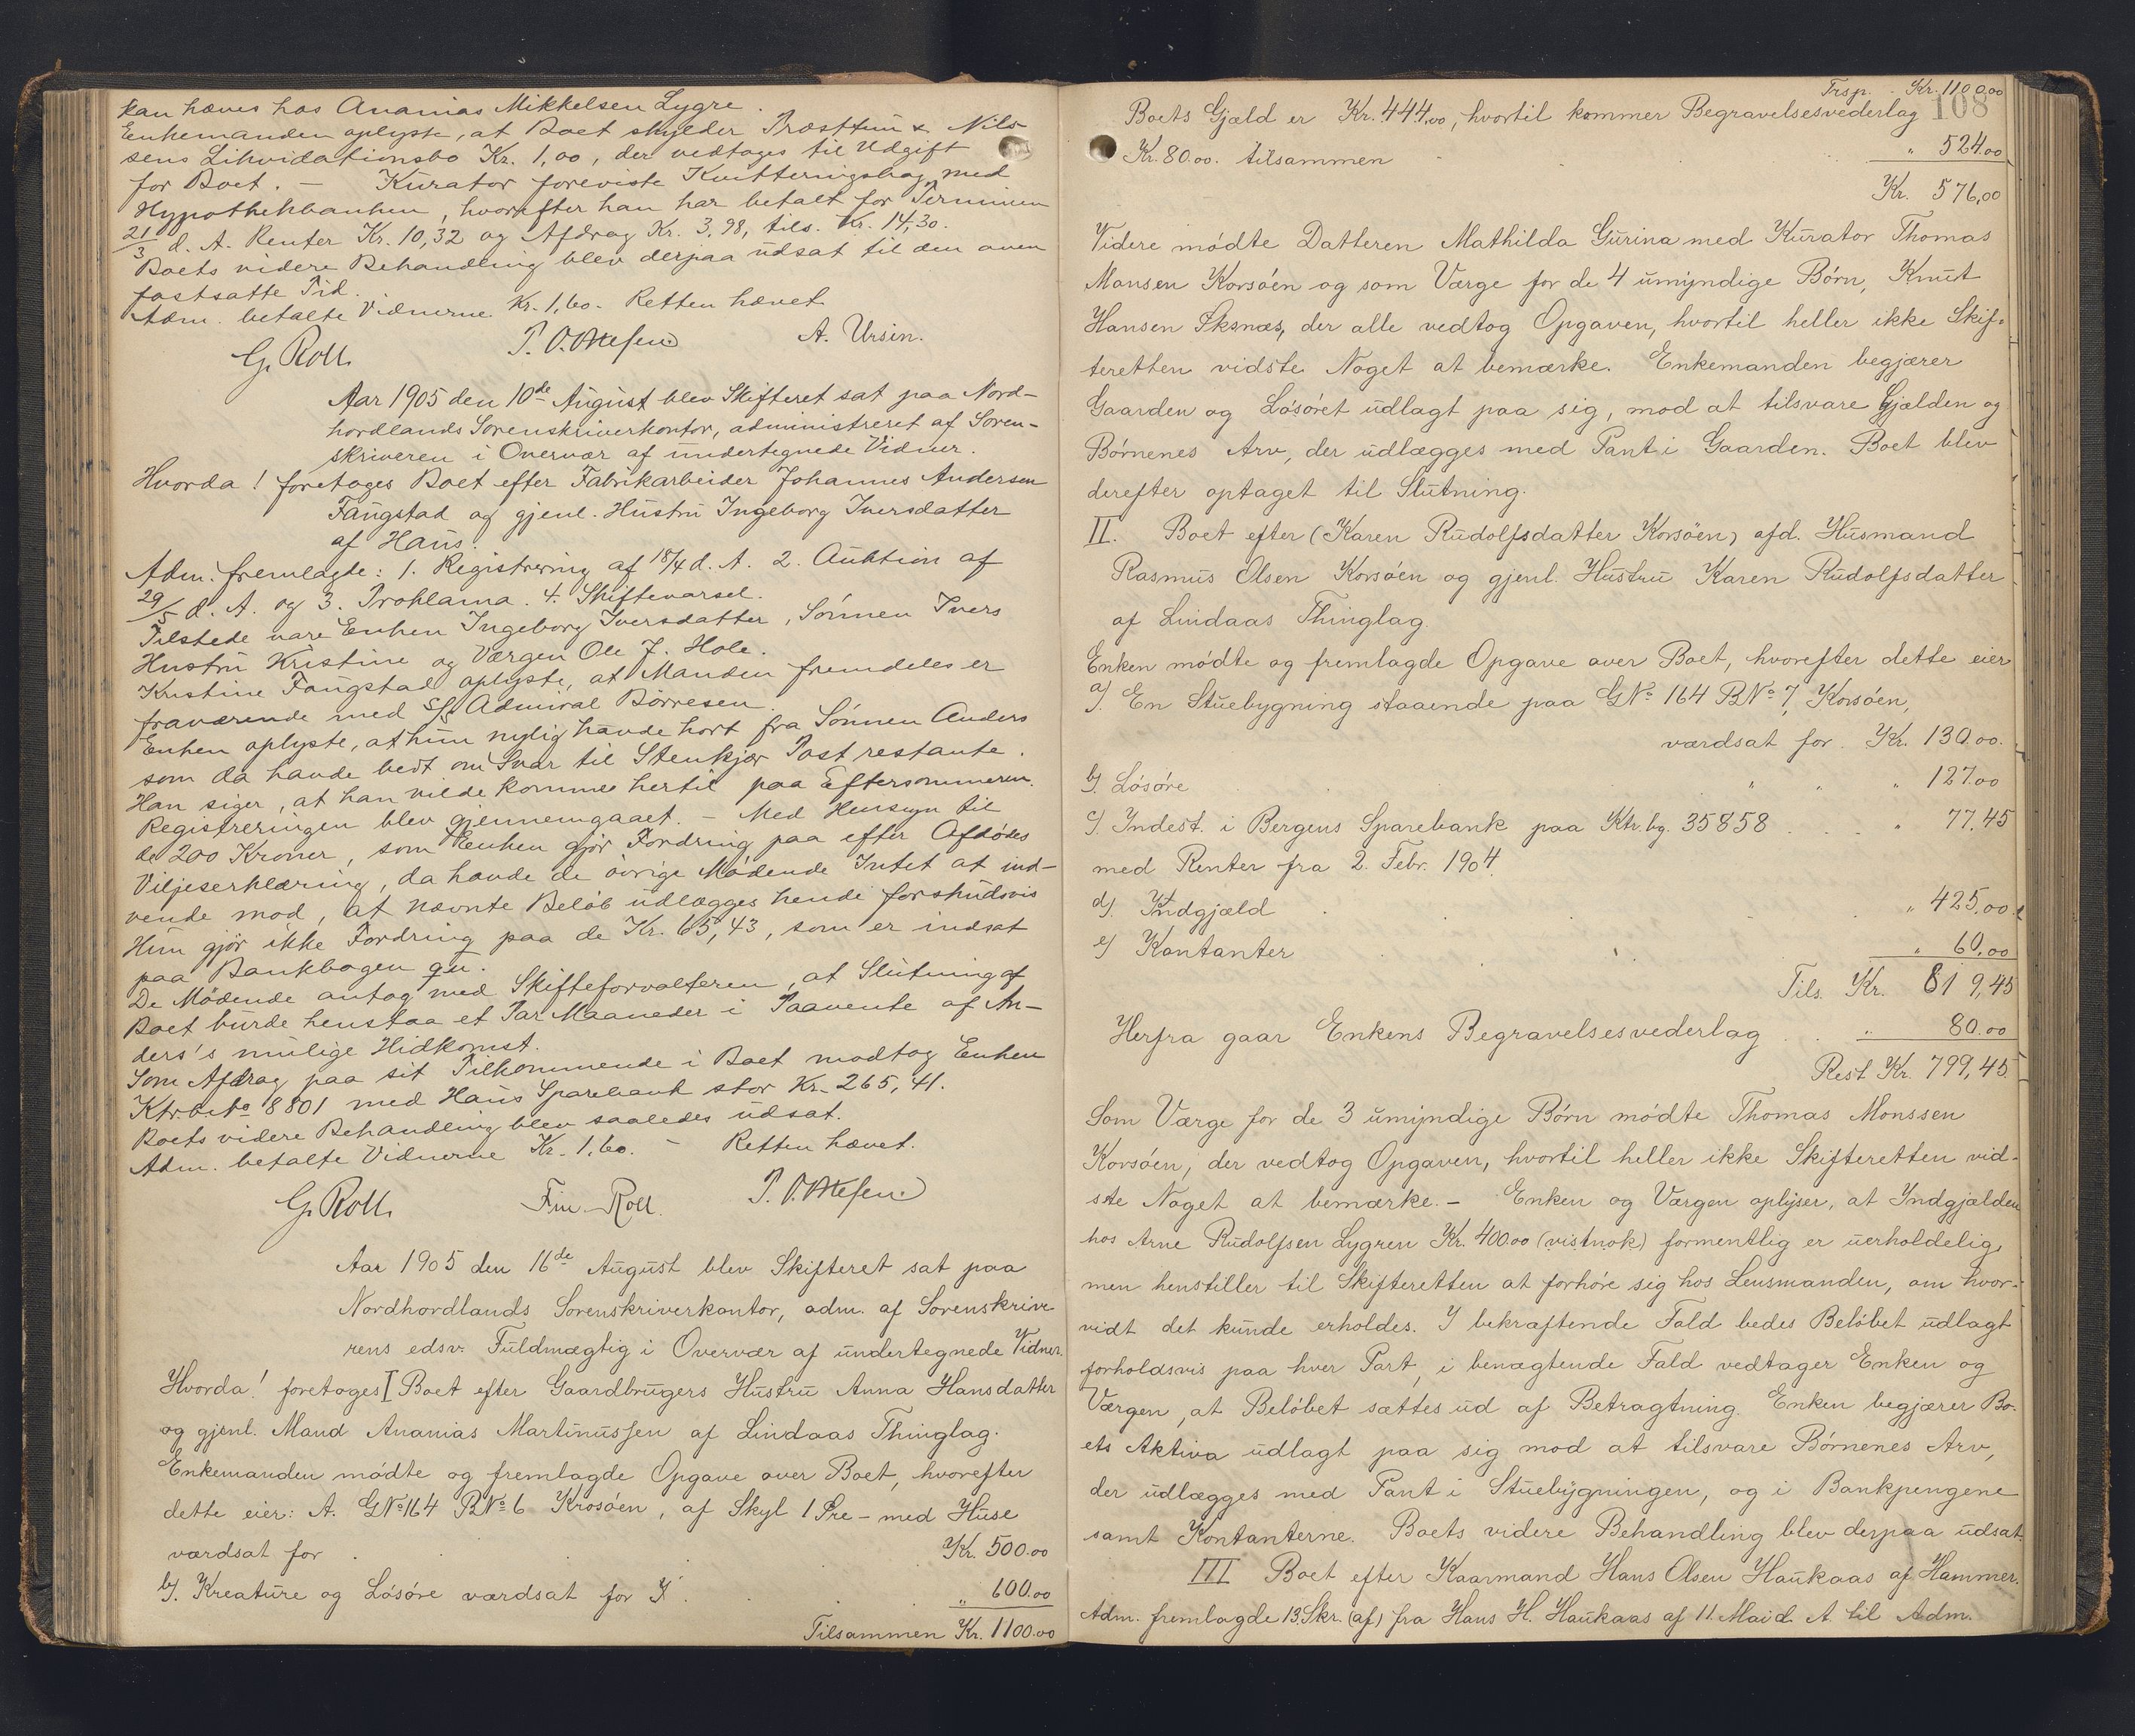 kan hæves hos Ananias Mikkelsen Lygre.
Enkemanden oplyste, at Boet skylder Præsttun & Nil-
sens Likvidationsbo Kr. 1,00, der vedtages til Udgift
for Boet. – Kurator foreviste Kvitteringsbog med
Hypothekbanken, hvorefter han har betalt for Terminen
21/3 d. A. Renter Kr. 10,32 og Afdrag Kr. 3,98, tils. Kr. 14,30.
Boets videre Behandling blev derpaa udsat til den oven
fastsatte Tid.
Adm. betalte Vidnerne Kr. 1,60. Retten hævet.
G. Roll. A. Ursin.
Aar 1905 den 10de August blev Skifteret sat paa Nord-
hordlands Sorenskriverkontor, administreret af Soren-
skriveren i Overvær af undertegnede Vidner.
Hvorda! foretoges Boet efter Fabrikarbeider Johannes Andersen
Faugstad og gjenl. Hustru Ingeborg Iversdatter
af Haus.
Adm. fremlagde: 1. Registrering af 18/4 d. A. 2. Auktion af
29/5 d. A. og 3. Proklama. 4. Skiftevarsel.
Tilstede vare Enken Ingeborg Iversdatter, Sønnen Ivers
Hustru Kristine og Værgen Ole J. Hole.
Kristine Faugstad oplyste, at Manden fremdeles er
fraværende med S/S Admiral Börresen.
Enken oplyste, at hun nylig havde hørt fra Sønnen Anders
som da havde bedt om Svar til Stenkjær Post restante.
Han siger, at han vilde komme hertil paa Eftersommeren.
Registreringen blev gjennemgaaet. – Med Hensyn til
de 200 Kroner, som Enken gjør Fordring paa efter Afdødes
Viljeserklæring, da havde de øvrige Mødende Intet at ind-
vende mod, at nævnte Beløb udlægges hende forskudsvis
Hun gjør ikke Fordring paa de Kr. 65,43, som er indsat
paa Bankbogen qu.
De Mødende antog med Skifteforvalteren, at Slutning af
Boet burde henstaa et Par Maaneder i Paavente af An-
ders's mulige Hidkomst.
Som Afdrag paa sit Tilkommende i Boet modtog Enken
Ktrb. No 8801 med Haus Sparebank stor Kr. 265,41.
Boets videre Behandling blev saaledes udsat.
Adm. betalte Vidnerne Kr. 1,60. – Retten hævet.
G. Roll. Fin. Roll.
Aar 1905 den 16de August blev Skifteret sat paa
Nordhordlands Sorenskriverkontor, adm. af Sorenskrive
rens edsv. Fuldmægtig i Overvær af undertegnede Vidner.
Hvorda! foretoges I Boet efter Gaardbrugers Hustru Anna Hansdatter
og gjenl. Mand Ananias Martinussen af Lindaas Thinglag.
Enkemanden mødte og fremlagde Opgave over Boet, hvorefter
dette eier: A. GNo 164 BNo 6 Krosøen, af Skyl 1 Øre – med Huse
værdsat for . . . Kr. 500.00
b). Kreature og Løsøre værdsat for . . . „ 600.00
Tilsammen Kr. 1100.00
Trsp. Kr. 1100.00
108
Boets Gjæld er Kr. 444.00, hvortil kommer Begravelsesvederlag
Kr. 80.00. tilsammen . . . „ 524.00
Kr. 576,00
Videre mødte Datteren Mathilda Gurina med Kurator Thomas
Monsen Korsøen og som Værge for de 4 umyndige Børn, Knut
Hansen Eksnæs, der alle vedtog Opgaven, hvortil heller ikke Skif-
teretten vidste Noget at bemærke. Enkemanden begjærer
Gaarden og Løsøret udlagt paa sig, mod at tilsvare Gjælden og
Børnenes Arv, der udlægges med Pant i Gaarden. Boet blev
derefter optaget til Slutning.
II. Boet efter (Karen Rudolfsdatter Korsøen) afd. Husmand
Rasmus Olsen Korsøen og gjenl. Hustru Karen Rudolfsdatter
af Lindaas Thinglag.
Enken mødte og fremlagde Opgave over Boet, hvorefter dette eier
a). En Stuebygning staaende paa GNo 164 BNo 7, Korsøen,
værdsat for . Kr. 130.00.
b). Løsøre . „ . „ 127.00
c). Indest. i Bergens Sparebank paa Ktr. bg. 35858 . . . „ 77,45
med Renter fra 2. Febr. 1904.
d). Indgjæld . . . „ 425.00
e) Kontanter . . . „ 60.00
Tils. Kr. 819,45
Herfra gaar Enkens Begravelsesvederlag . . „ 80.00
Rest Kr. 799,45
Som Værge for de 3 umyndige Børn mødte Thomas Monssen
Korsøen, der vedtog Opgaven, hvortil heller ikke Skifteretten vid-
ste Noget at bemærke. – Enken og Værgen oplyser, at Indgjælden
hos Arne Rudolfsen Lygren Kr. 400.00 (vistnok) formentlig er uerholdelig,
men henstiller til Skifteretten at forhøre sig hos Lensmanden, om hvor-
vidt det kunde erholdes. I bekræftende Fald bedes Beløbet udlagt
forholdsvis paa hver Part, i benægtende Fald vedtager Enken og
Værgen, at Beløbet sættes ud af Betragtning. Enken begjærer Bo-
ets Aktiva udlagt paa sig mod at tilsvare Børnenes Arv,
der udlægges med Pant i Stuebygningen, og i Bankpengene
samt Kontanterne. Boets videre Behandling blev derpaa udsat.
III Boet efter Kaarmand Hans Olsen Haukaas af Hammer.
Adm. fremlagde 13. Skr. (af) fra Hans H. Haukaas af 11. Mai d. A. til Adm.